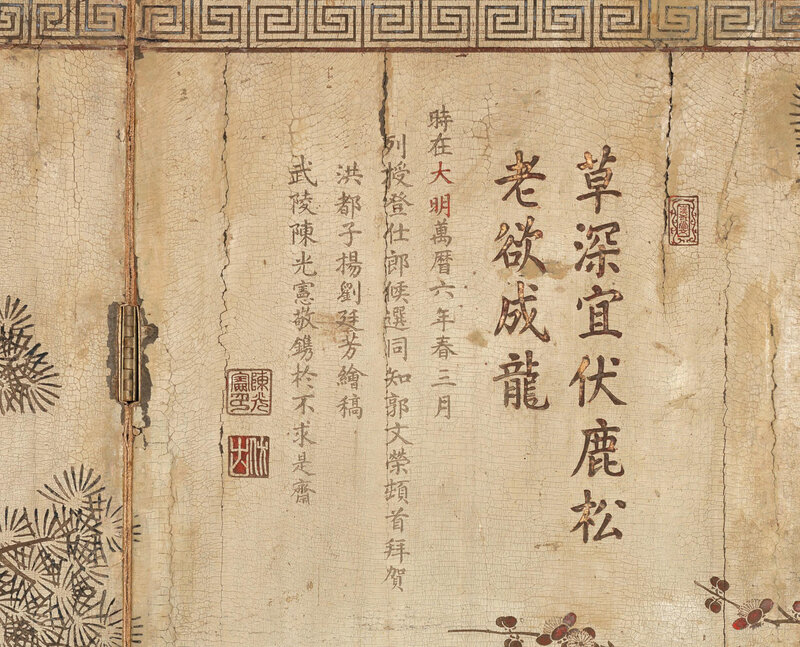 草深宜伏鹿松
老欲成龍
時在大明萬曆六年春三月
列授登仕郎候選同知郭文榮頓首拜賀
洪都子揚劉廷芳繪稿
武陵陳光憲敬鐫於不求是齋
陳光憲印